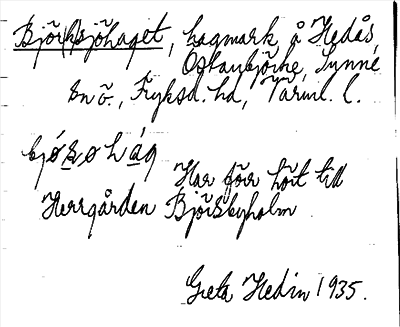 Björ(k)sjöhaget, hagmark å Hedås,
Östanbjörke, Sunne
sn ö., Fryksd. hd, Värml. l.
bjósøhág
Har förr hört till
Herrgården Björsbyholm
Greta Hedin 1935.